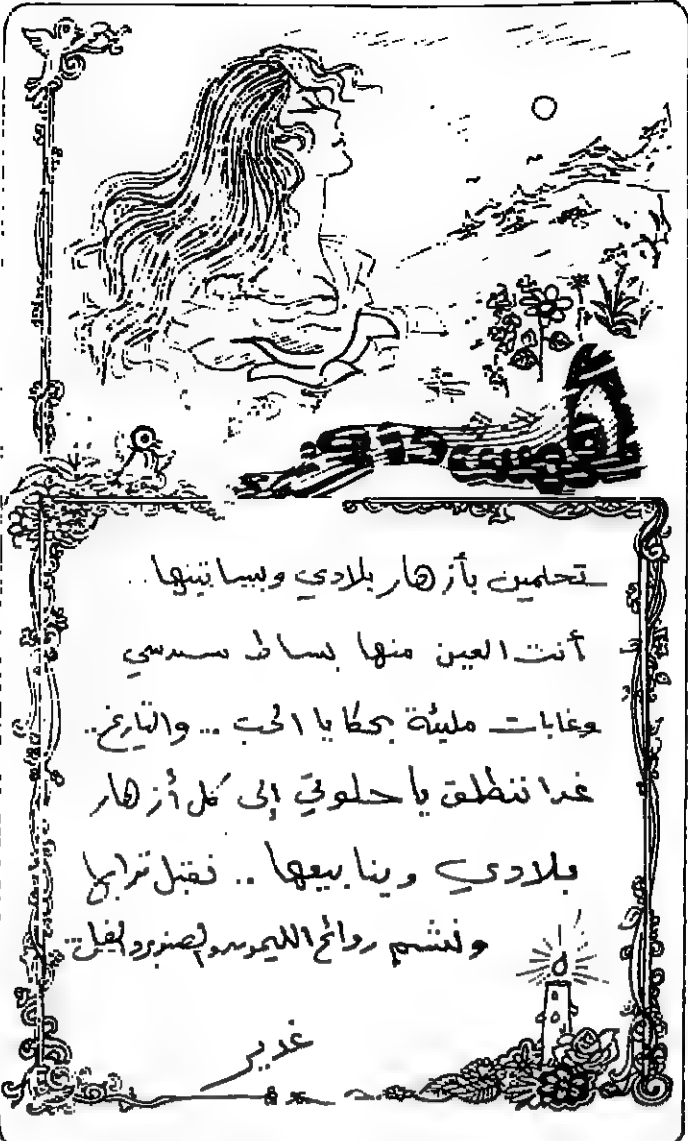 تحلمين بأزهار بلادي وبساتينها..
أنت العين منها بساط سندسي
وغابات مليئة بحكايا الحب ... والتاريخ..
غدا ننطلق يا حلوتي إلى كل أزهار
بلادي وينابيعها .. نقبل ترابها
ونشم روائح الليمون والصنوبر والفل...
غدير